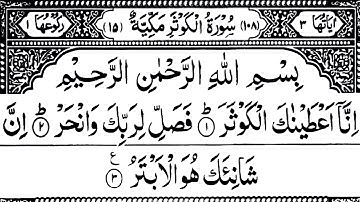 اٰیَاتُهَا ٣ (١٠٨) سُوْرَةُ الْكَوْثَرِ مَكِّيَّةٌ (١٥) رُكُوْعُهَا ١
بِسْمِ اللهِ الرَّحْمٰنِ الرَّحِيْمِ
اِنَّاۤ اَعْطَيْنٰكَ الْكَوْثَرَ ؕ ﴿١﴾ فَصَلِّ لِرَبِّكَ وَانْحَرْ ؕ ﴿٢﴾ اِنَّ
شَانِئَكَ هُوَ الْاَبْتَرُ ﴿٣﴾ ع